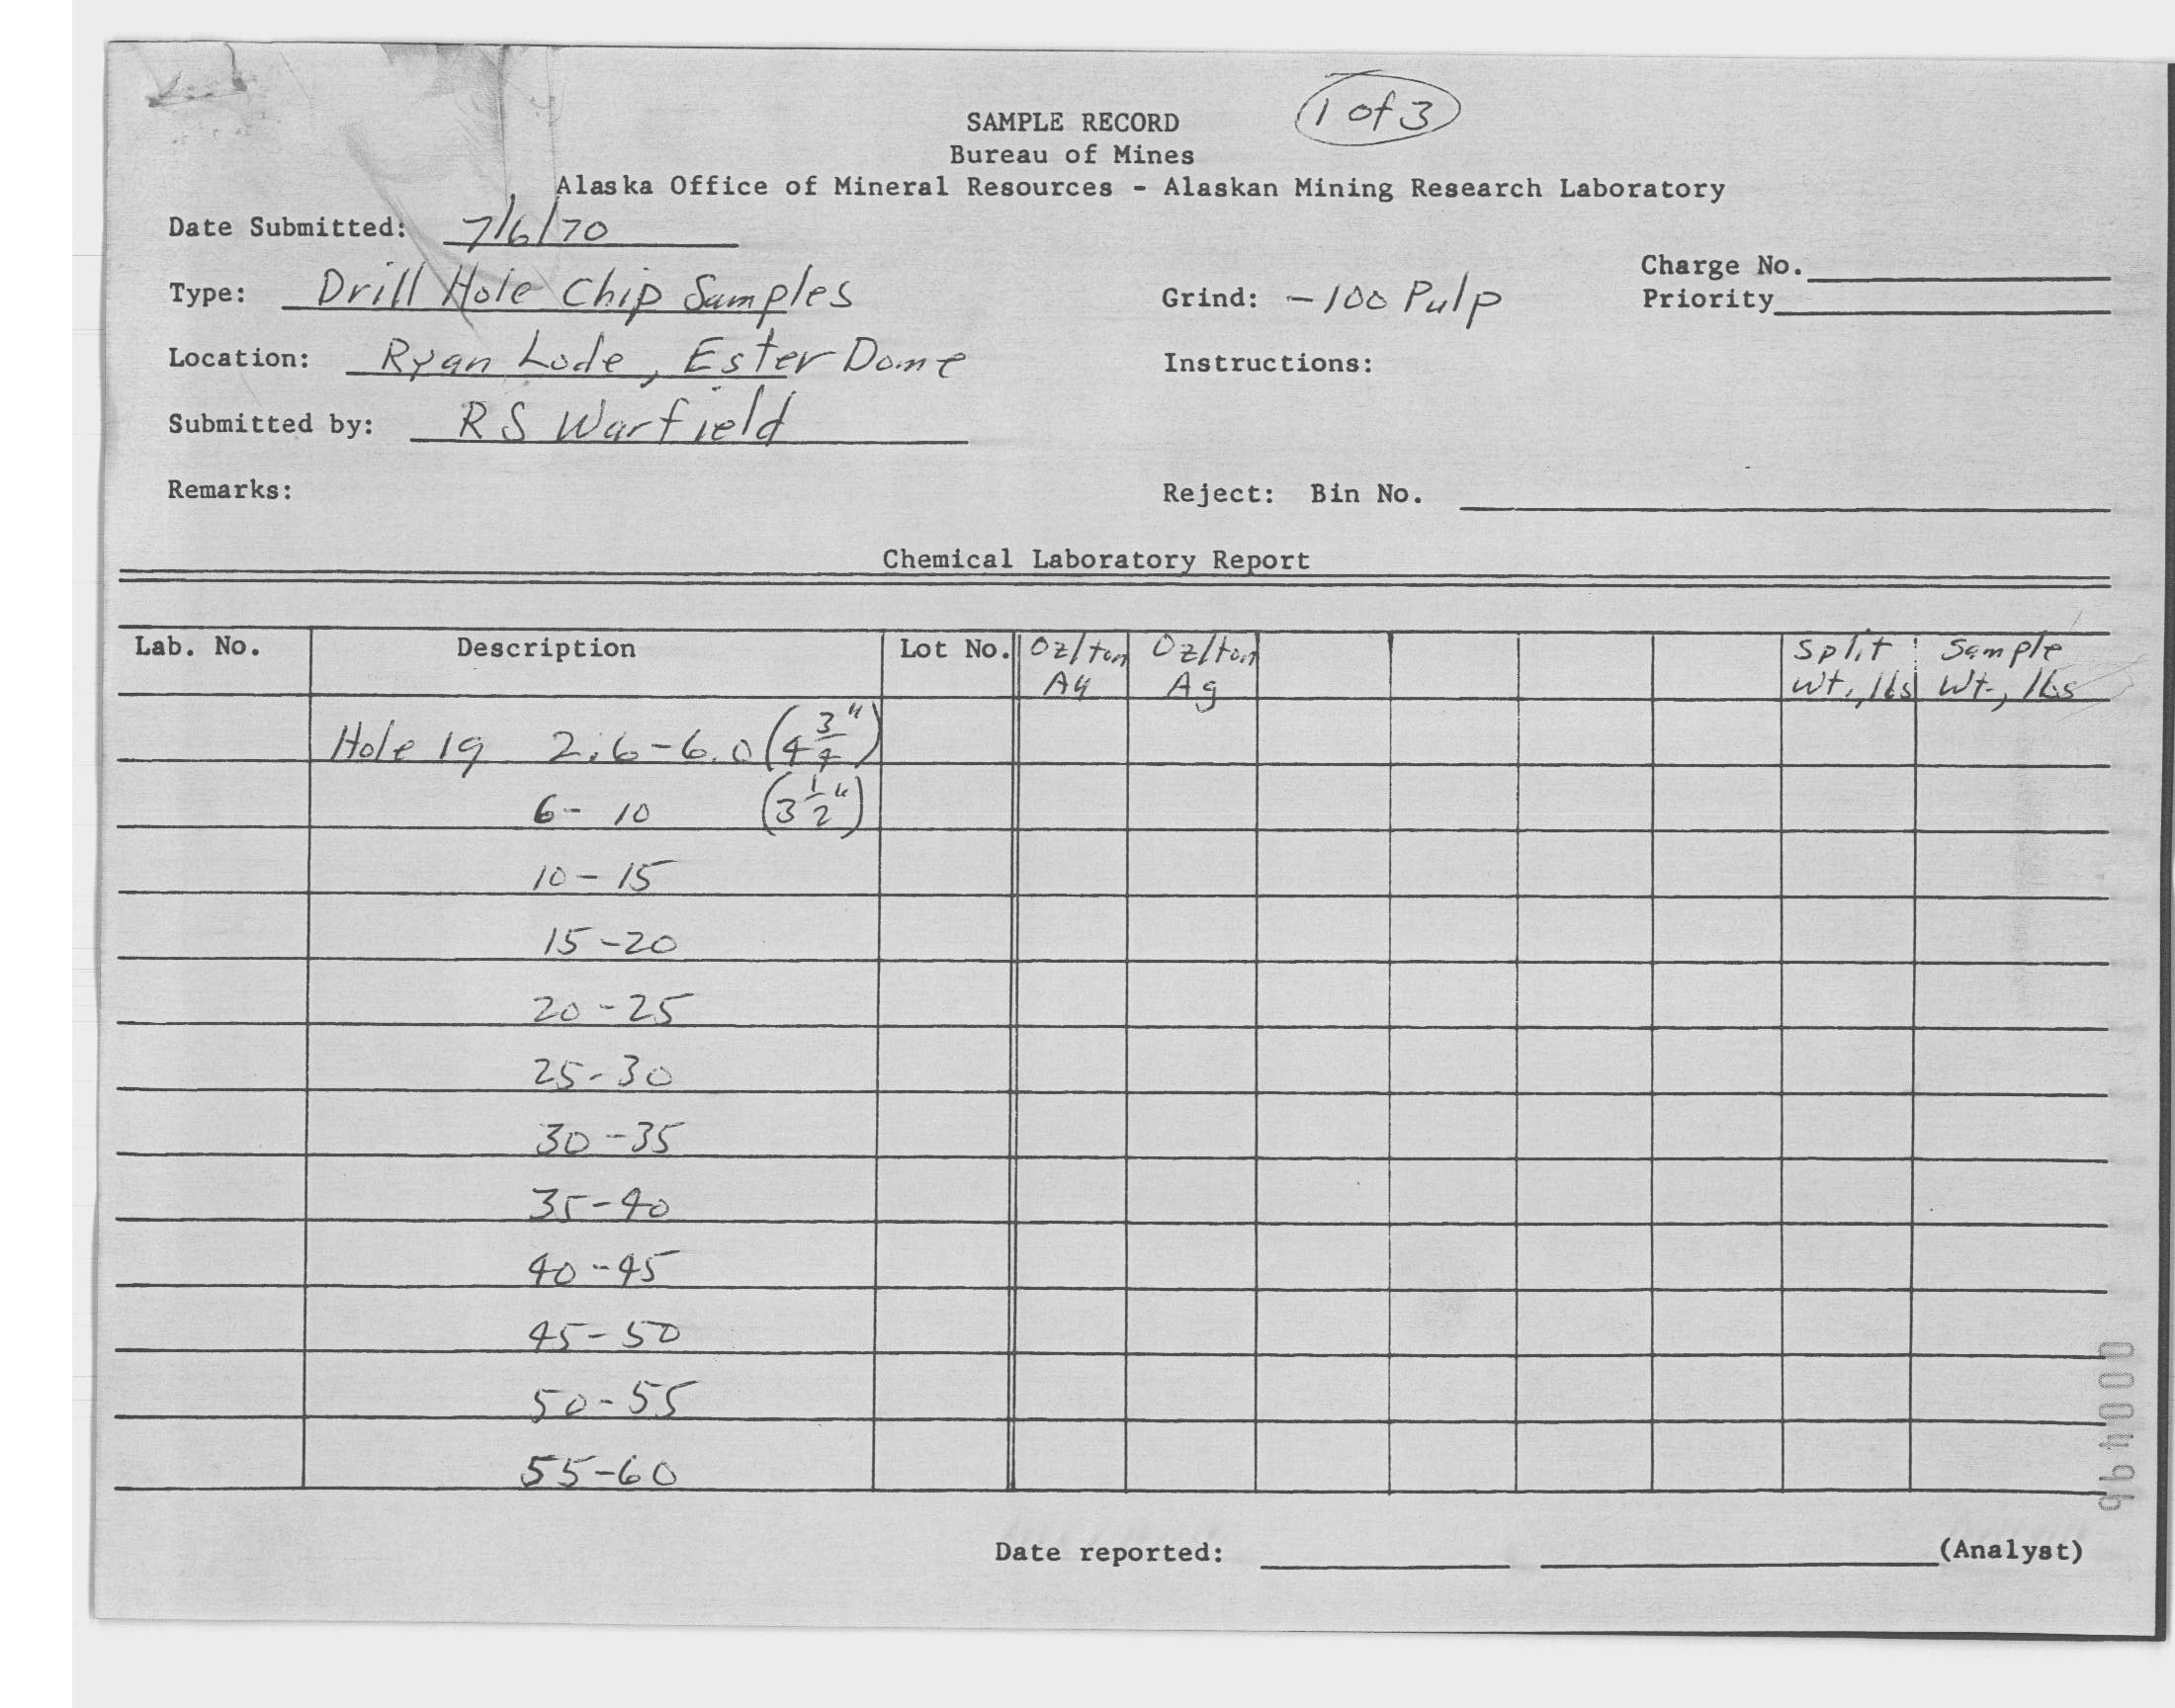 1 of 3
SAMPLE RECORD
Bureau of Mines
Alaska Office of Mineral Resources - Alaskan Mining Research Laboratory
Date Submitted: 7/6/70
Charge No.
Type: Drill Hole Chip Samples Grind: -100 Pulp Priority
Location: Ryan Lode, Ester Dome Instructions:
Submitted by: RS Warfield
Remarks: Reject: Bin No.
Chemical Laboratory Report
Lab. No. Description Lot No. Oz/ton Oz/ton Split Sample
Au Ag Wt., lbs Wt., lbs
Hole 19 2.6-6.0 (4 3/4")
6- 10 (3 1/2")
10-15
15-20
20-25
25-30
30-35
35-40
40-45
45-50
50-55
55-60
Date reported: (Analyst)
000496